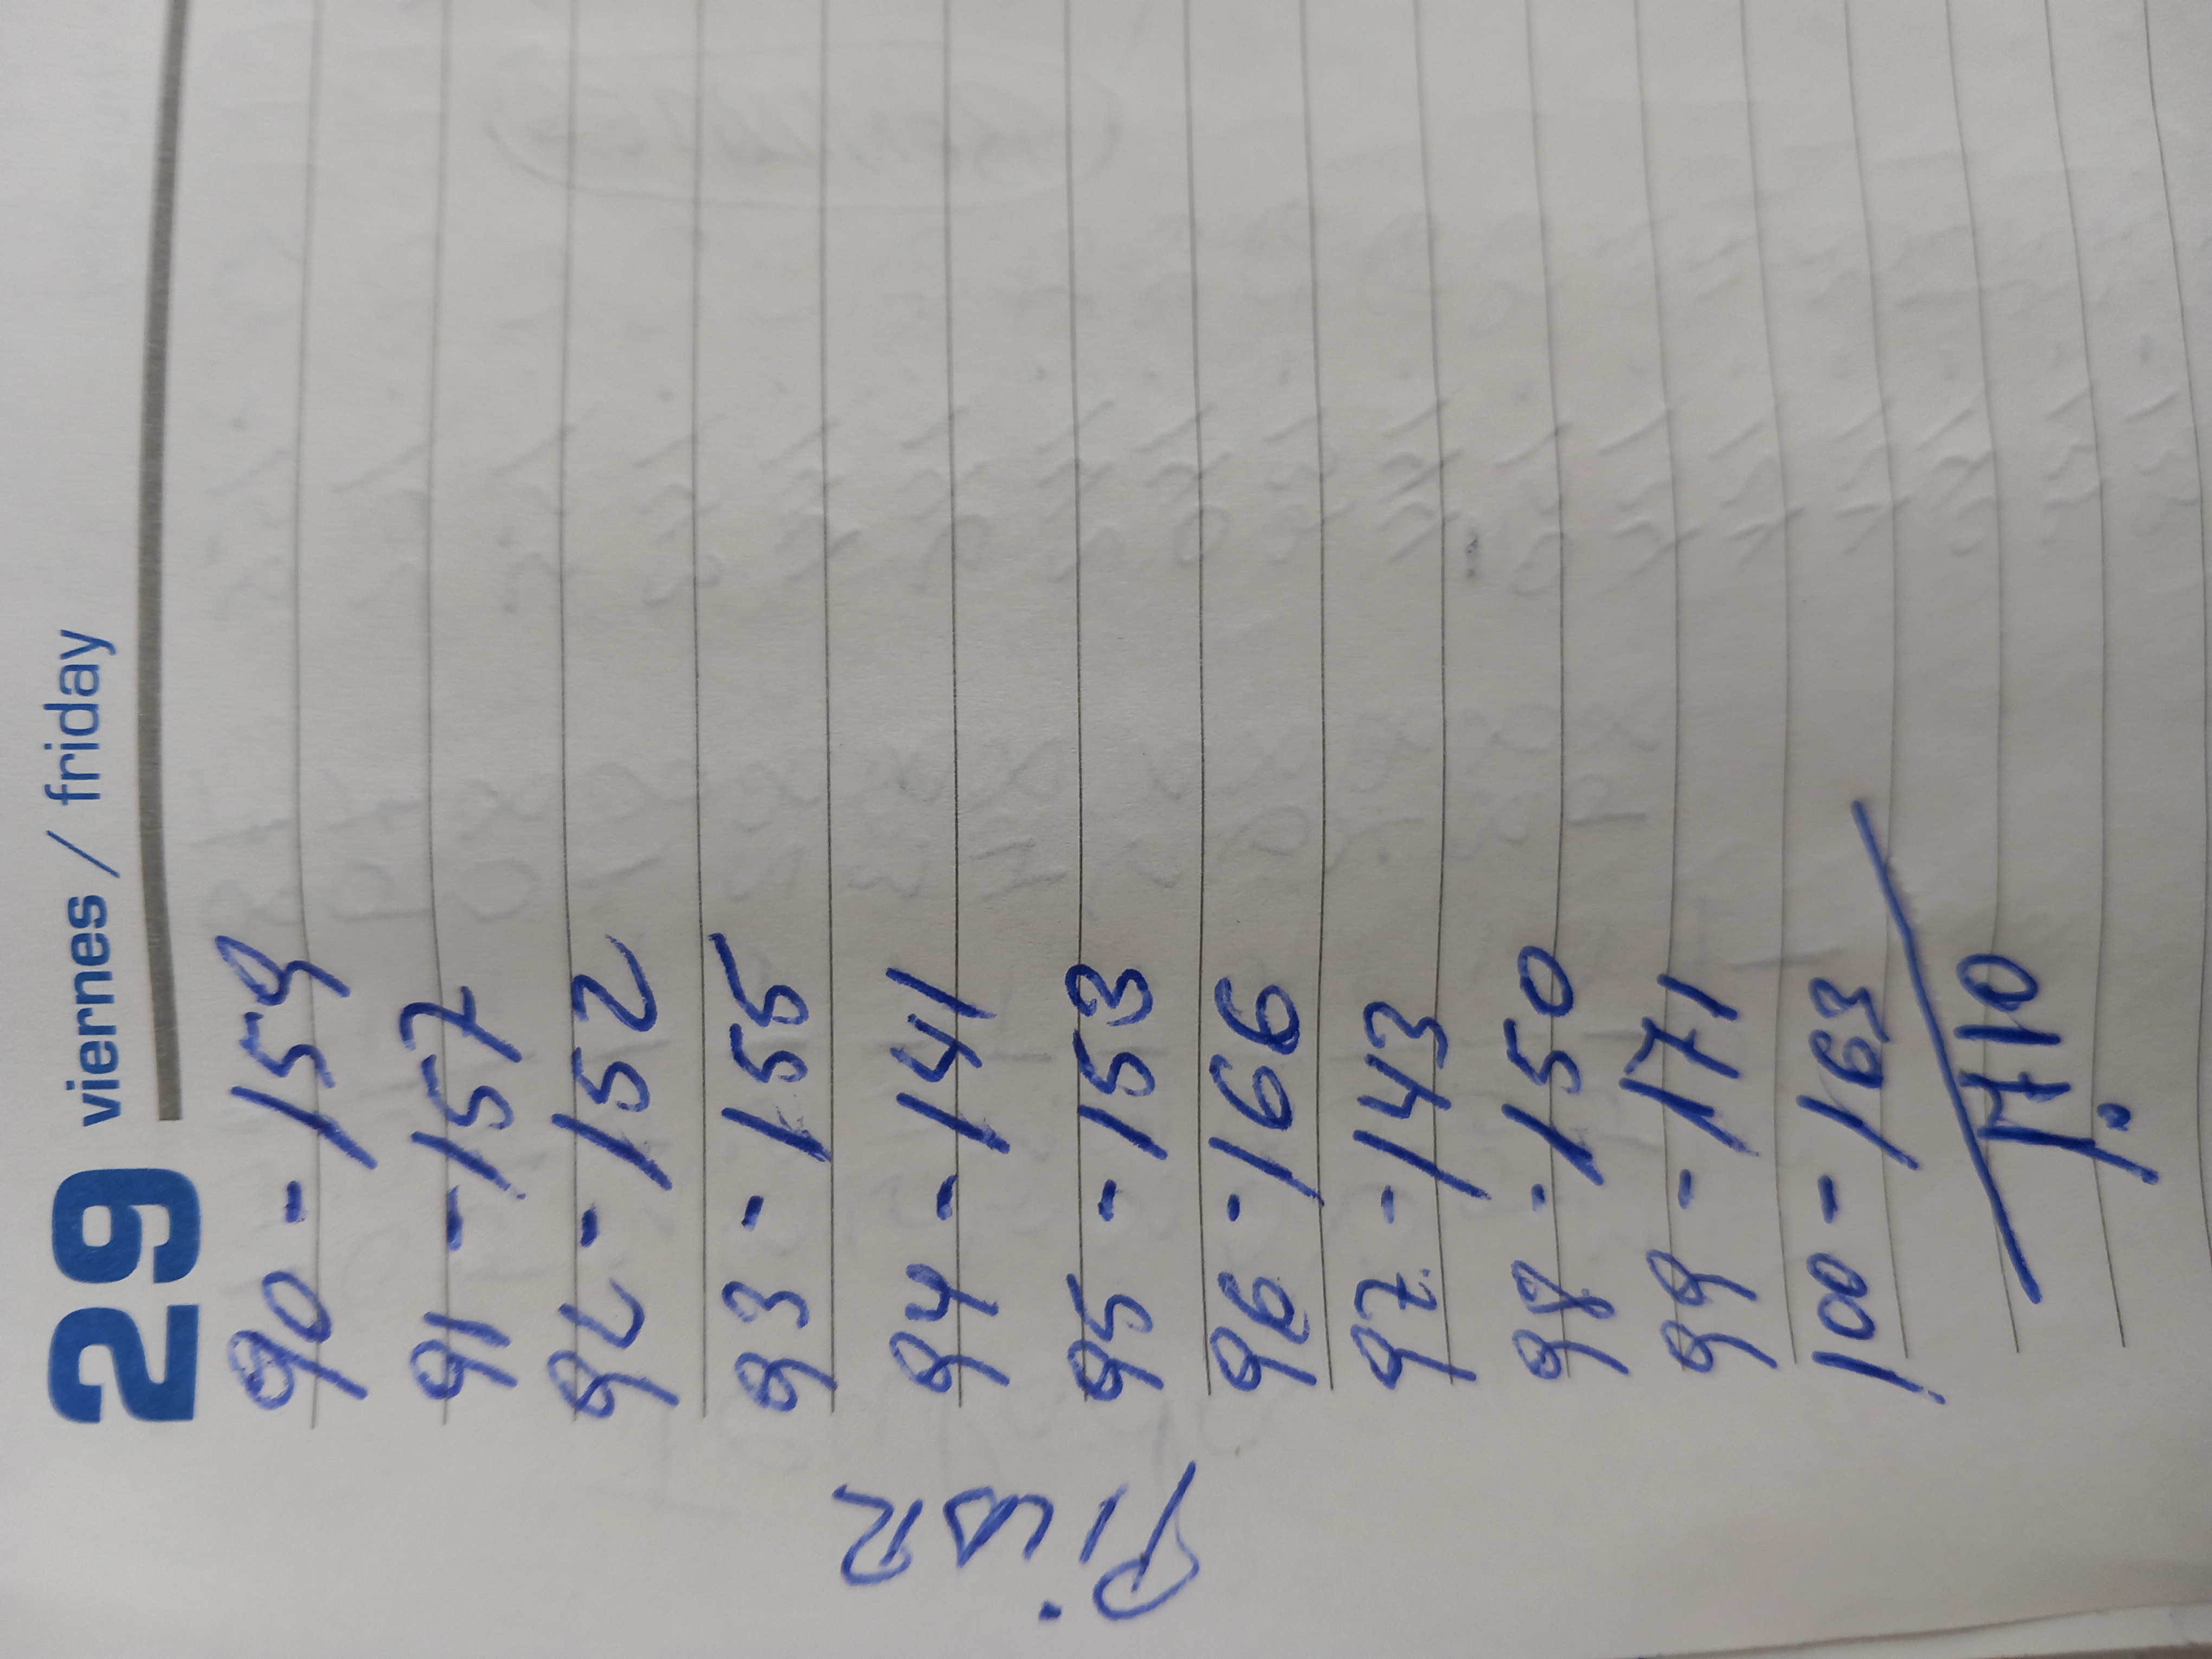 29 viernes / friday
90 - 159
91 - 157
92 - 152
93 - 155
94 - 141
95 - 153
96 - 166
97 - 143
98 - 150
99 - 171
100 - 163
1710
1.